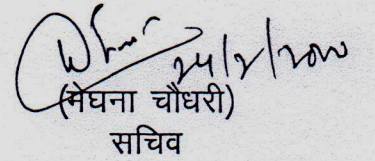 24/2/2020
(मेघना चौधरी)
सचिव